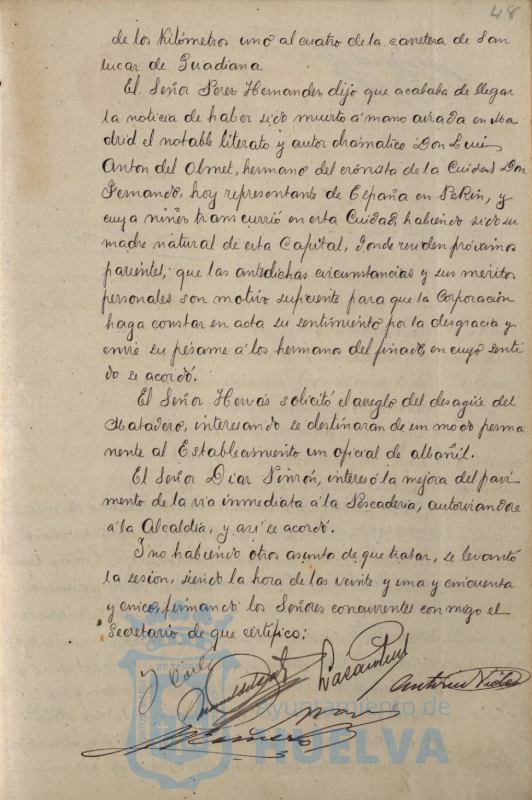 48
de los Kilómetros uno al cuatro de la carretera de San
lucar de Guadiana.
El Señor Perez Hernandez dijo que acababa de llegar
la noticia de haber sido muerto á mano airada en Ma
drid el notable literato y autor dramatico Don Luis
Anton del Olmet, hermano del cronista de la Ciudad Don
Fernando, hoy representante de España en Pekin, y
cuya niñez transcurrió en esta Ciudad, habiendo sido su
madre natural de esta Capital, donde residen próximos
parientes; que las antedichas circunstancias y sus meritos
personales son motivo suficiente para que la Corporación
haga constar en acta su sentimiento por la desgracia y
envie su pésame á los hermanos del finado, en cuyo senti
do se acordó.
El Señor Hervás solicitó el arreglo del desagüe del
Matadero, interesando se destinaran de un modo perma
nente al Establecimiento un oficial de albañil.
El Señor Diaz Pinzón, interesó la mejora del pavi-
mento de la via inmediata á la Pescaderia, autorizandose
á la Alcaldia, y así se acordó.
Y no habiendo otros asunto de que tratar, se levantó
la sesion, siendo la hora de las veinte y una y cincuenta
y cinco, firmando los Señores concurrentes con migo el
Secretario de que certifico:
Ayuntamiento de
HUELVA